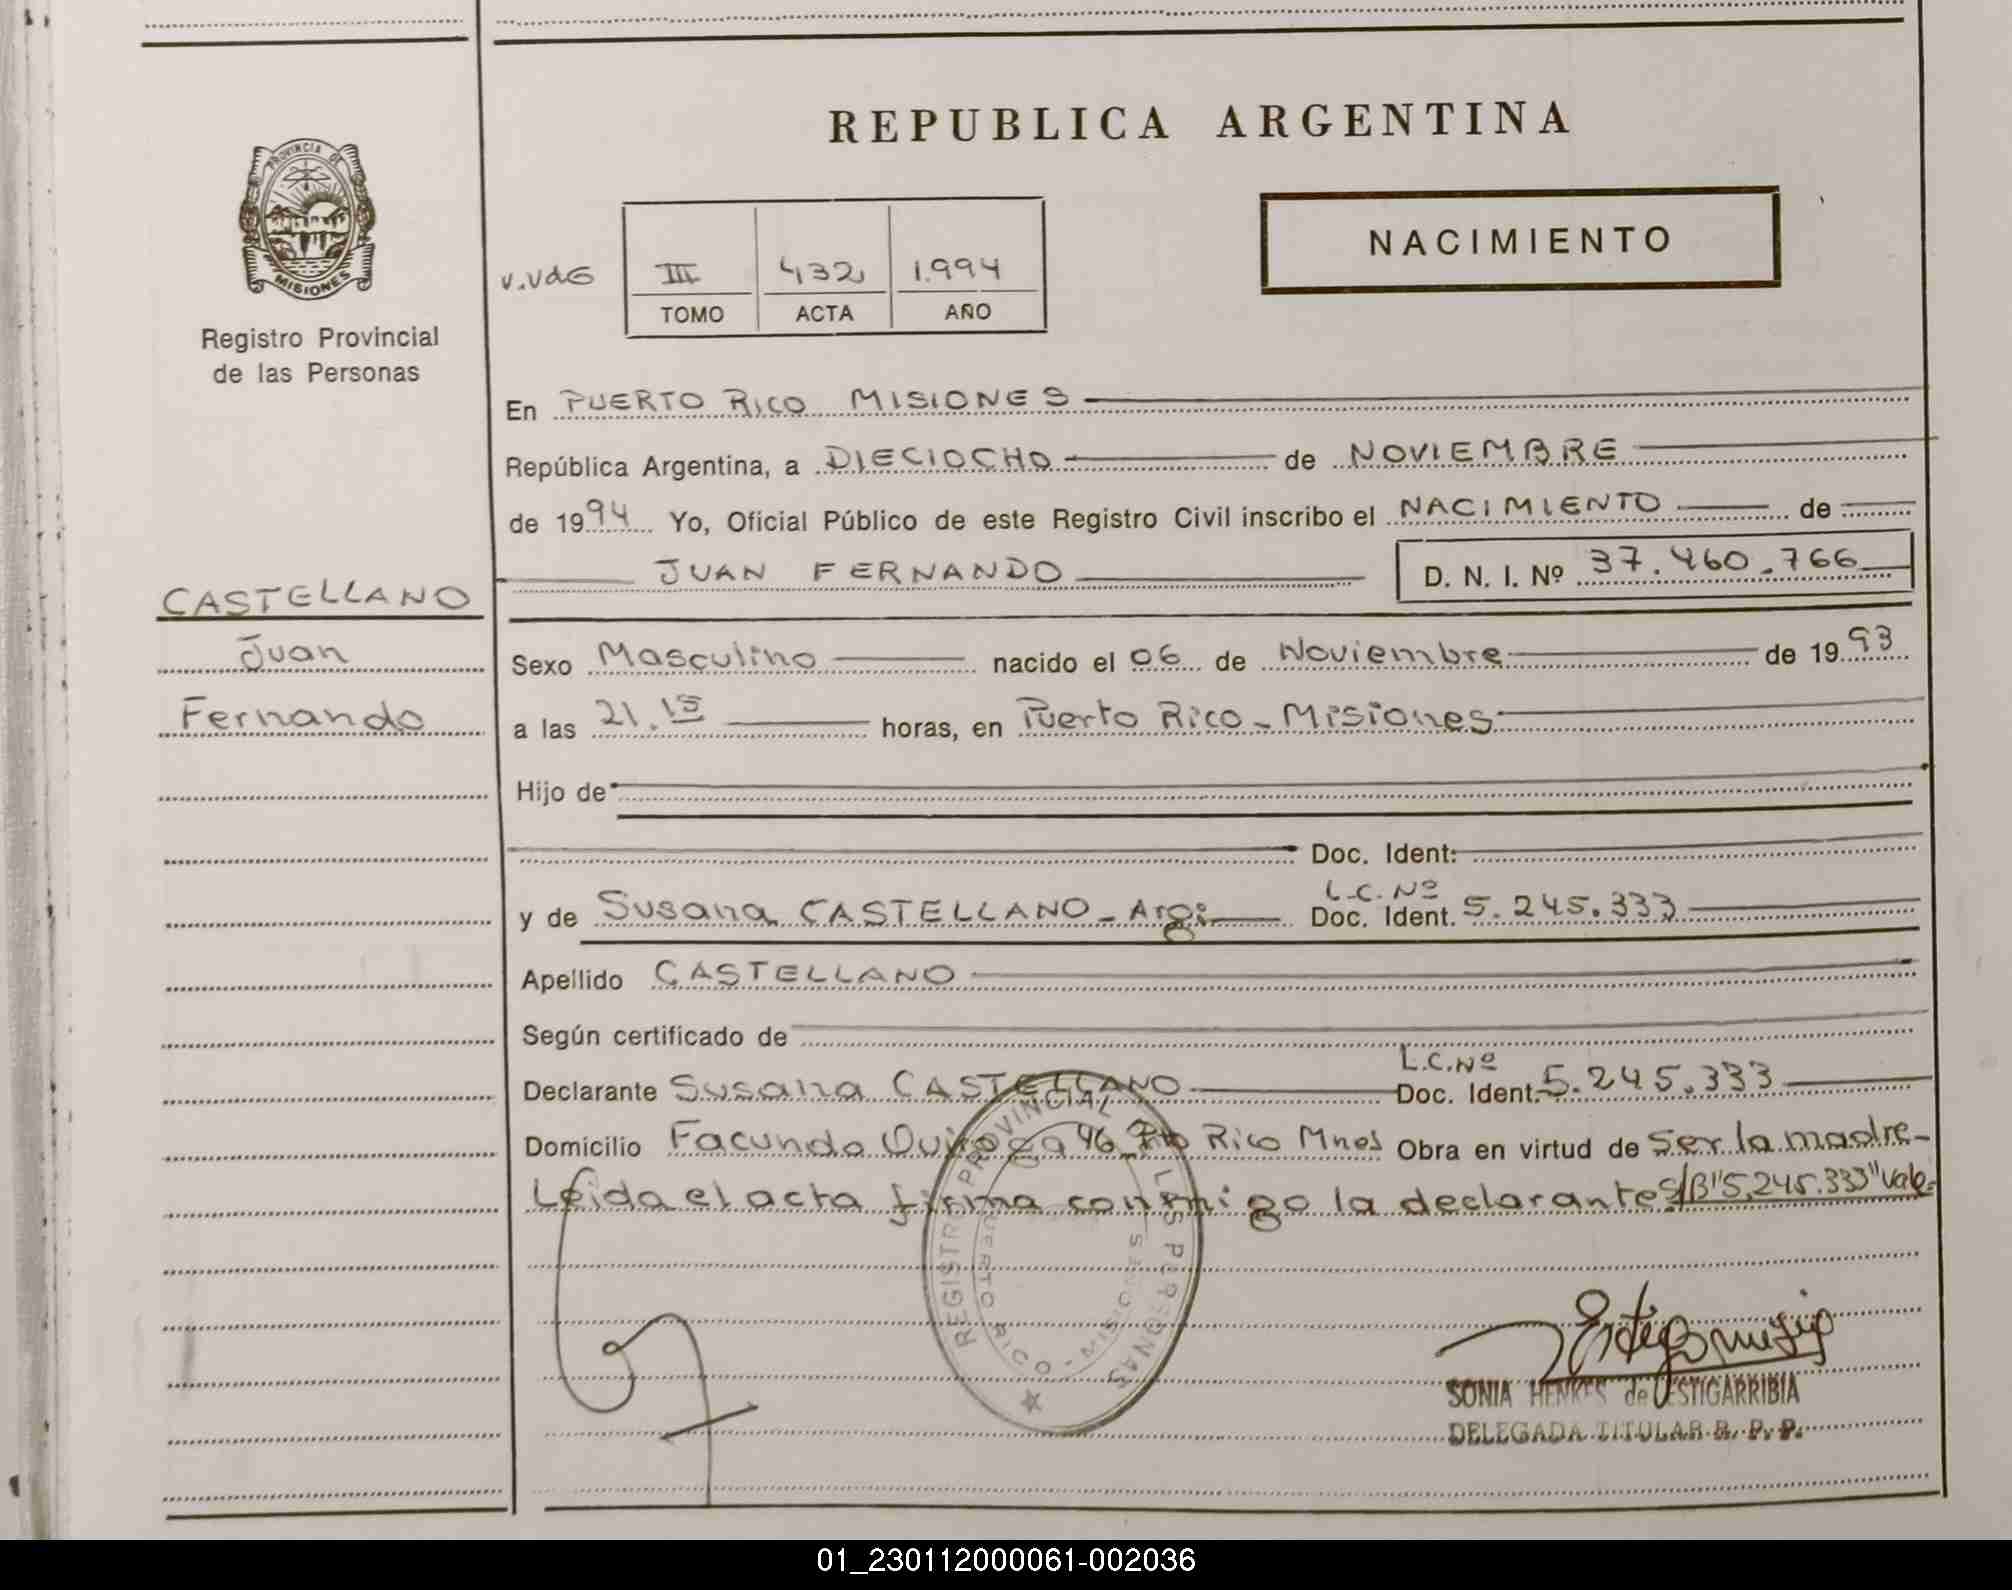 REPUBLICA ARGENTINA
PROVINCIA DE
MISIONES
Registro Provincial
de las Personas
NACIMIENTO
V.VdG
III 432 1.994
TOMO ACTA AÑO
En PUERTO RICO MISIONES
República Argentina, a DIECIOCHO de NOVIEMBRE
de 1994 Yo, Oficial Público de este Registro Civil inscribo el NACIMIENTO de
JUAN FERNANDO D. N. I. Nº 37.460.766
CASTELLANO
Juan
Fernando
Sexo Masculino nacido el 06 de Noviembre de 1993
a las 21.15 horas, en Puerto Rico - Misiones
Hijo de
Doc. Ident:
L.C. Nº
y de Susana CASTELLANO - Arg: Doc. Ident. 5.245.333
Apellido CASTELLANO
Según certificado de
L.C.Nº
Declarante Susana CASTELLANO Doc. Ident. 5.245.333
Domicilio Facundo Quiroga 46 Pto Rico Mnes Obra en virtud de ser la madre-
Leida el acta firma conmigo la declarante S/B "5.245.333" Vale
REGISTRO PROVINCIAL DE LAS PERSONAS
PUERTO RICO - MISIONES
SONIA HENKES de ESTIGARRIBIA
DELEGADA TITULAR R. P. P.
01_230112000061-002036